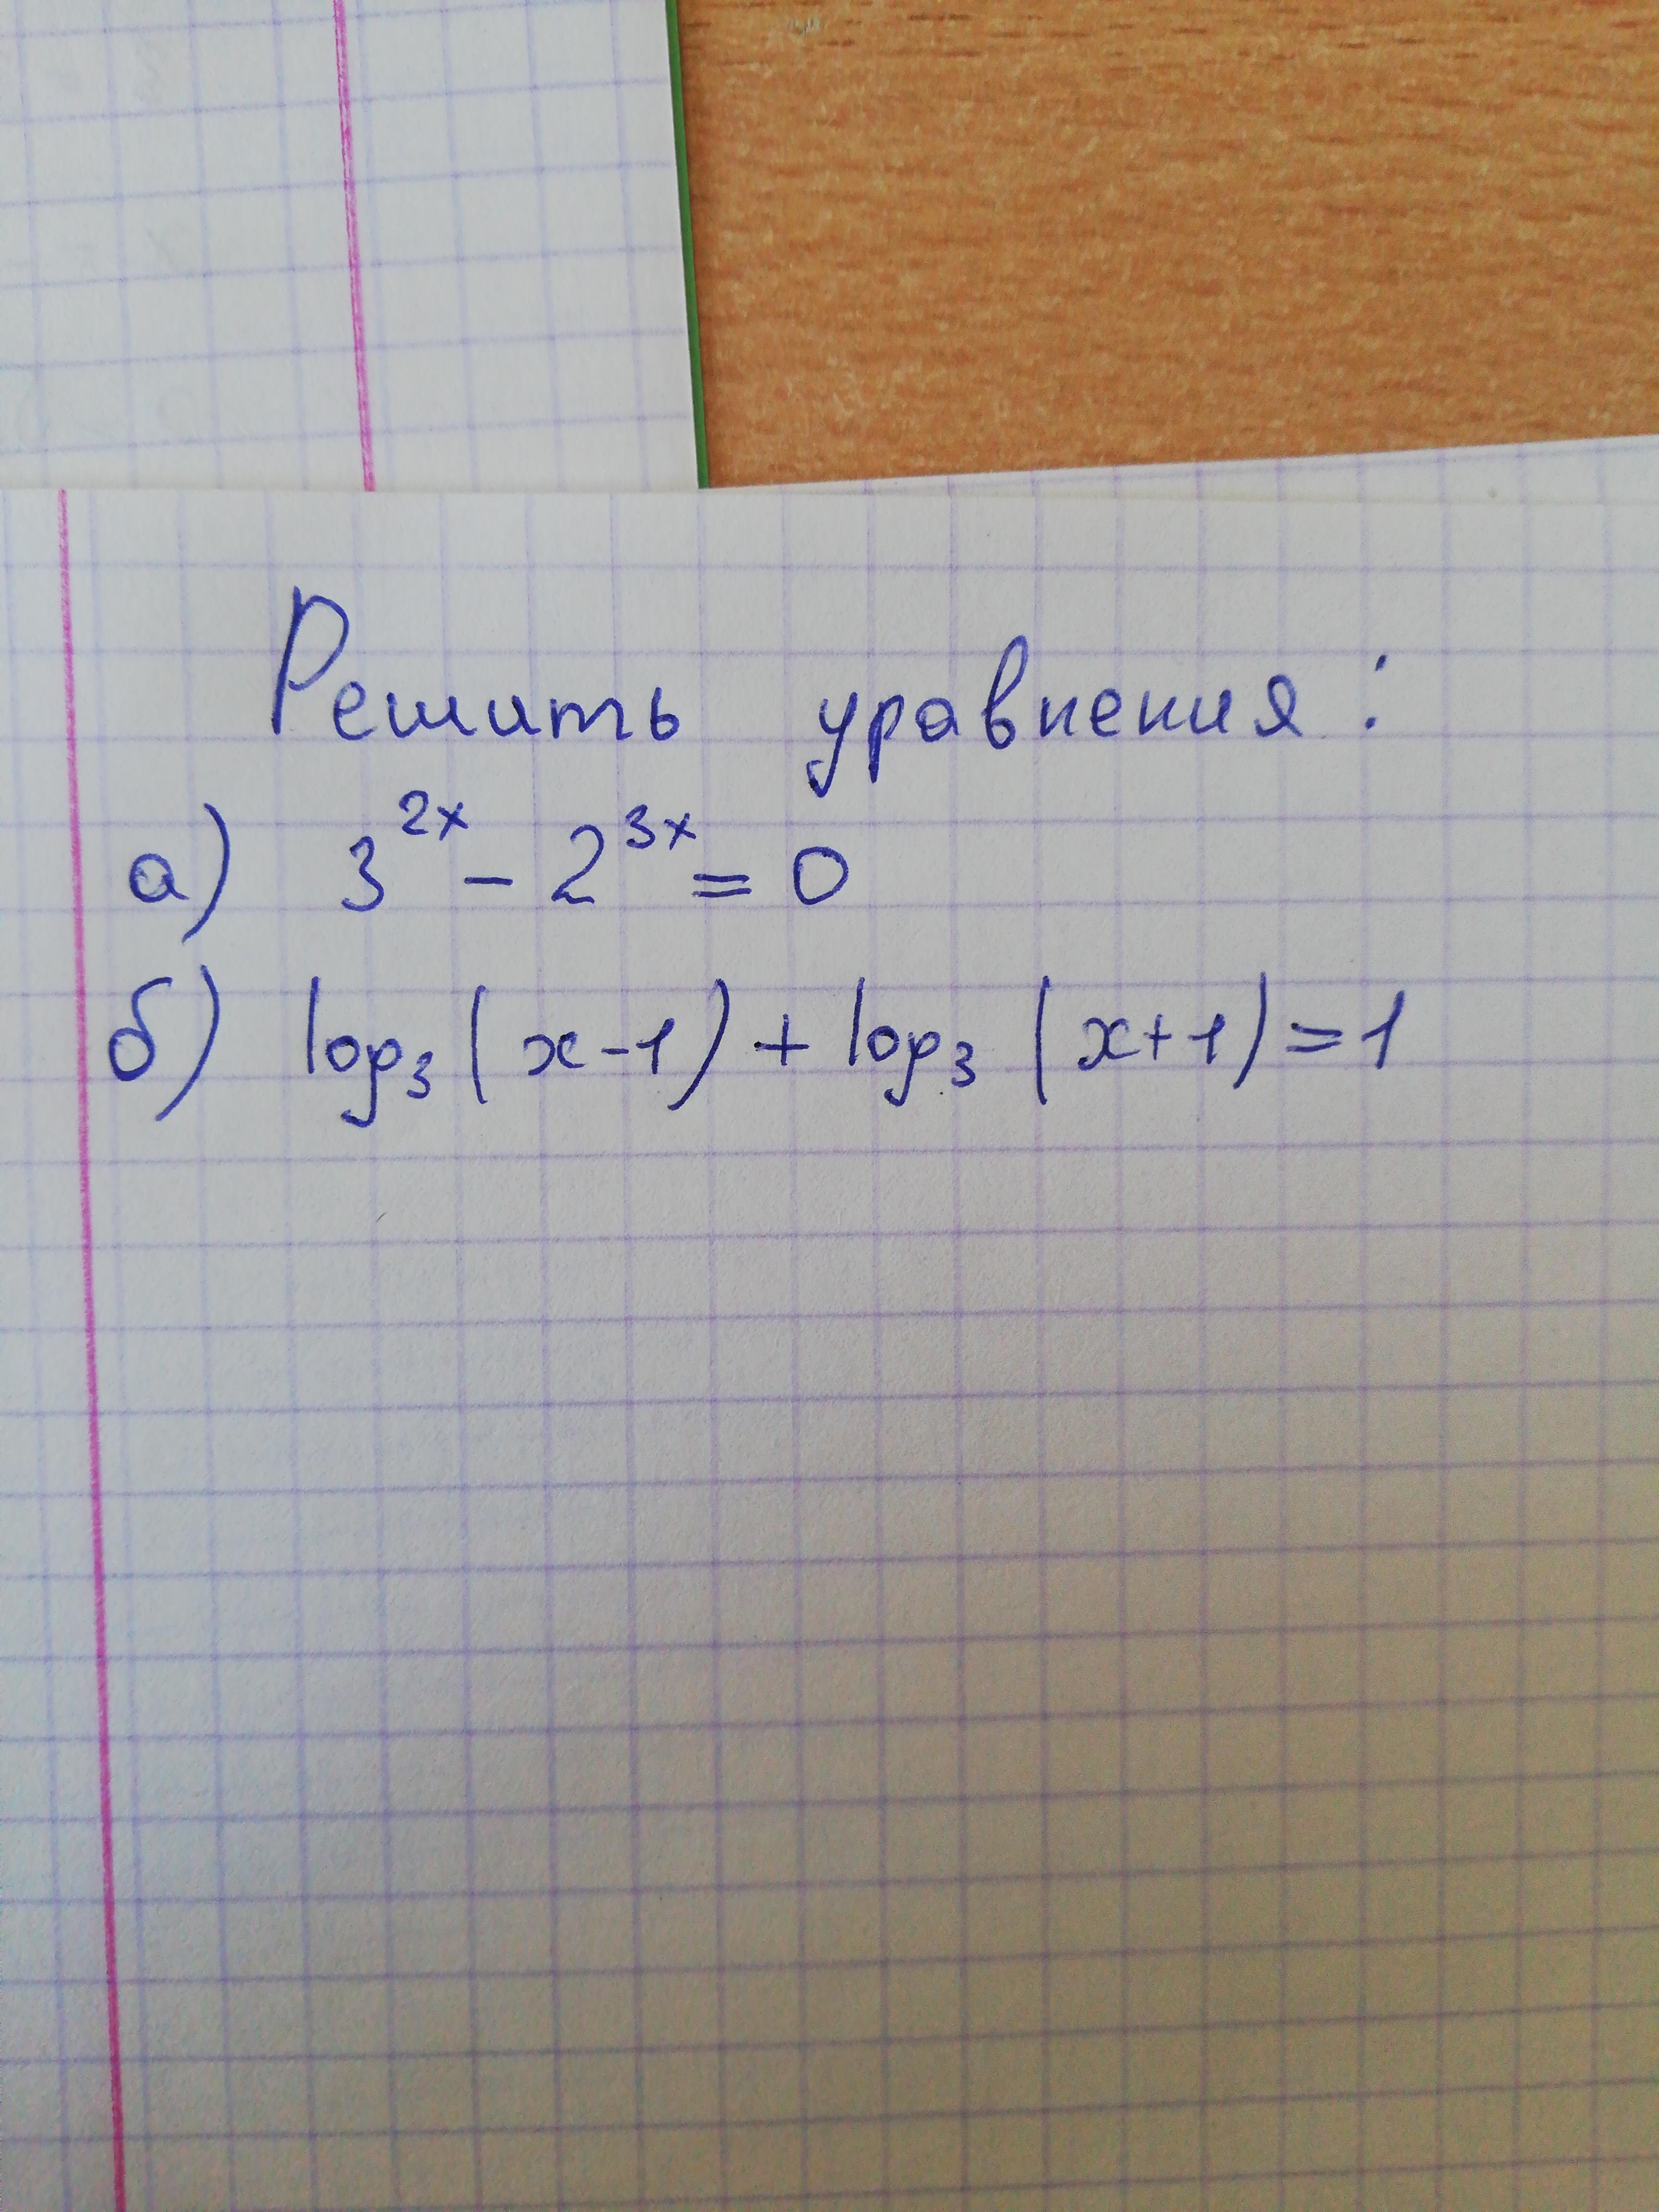 Решить уравнения:
а) 3^{2x} - 2^{3x} = 0
б) log₃(x-1) + log₃(x+1) = 1